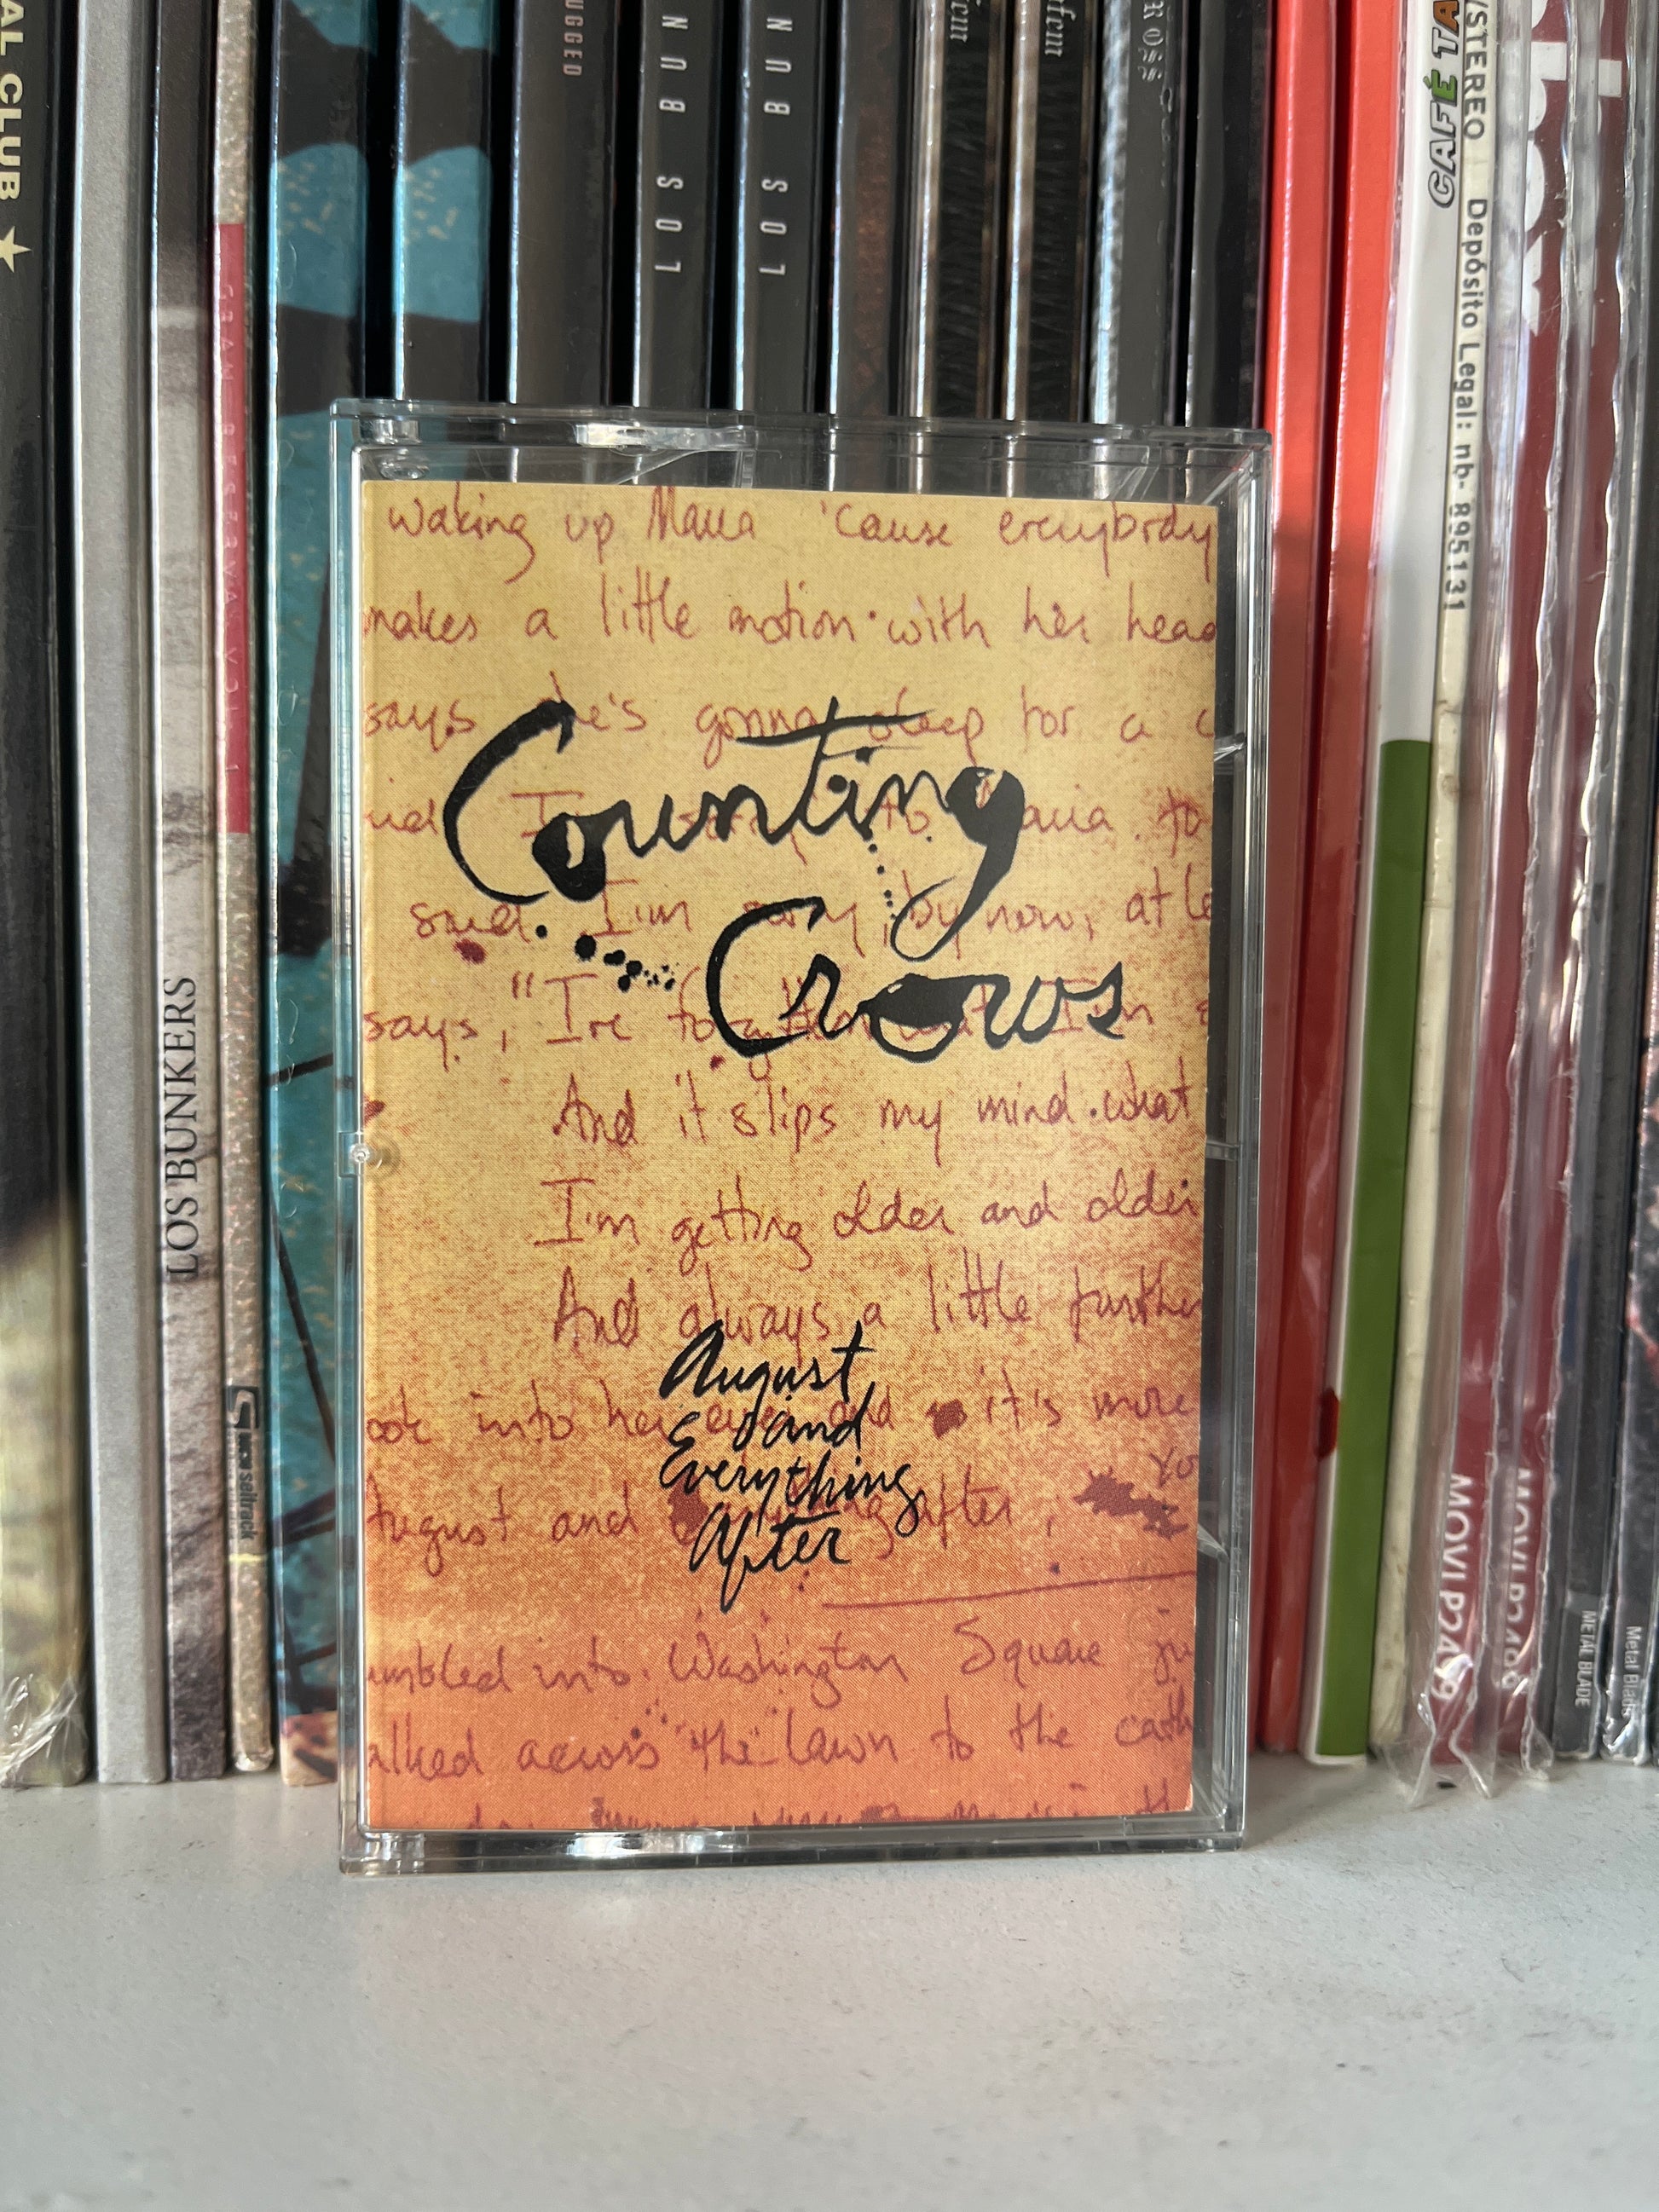 AL CLUB ★
LOS BUNKERS
GRAN RESERVA VOL. 1
UGGED
NUBSOL
NUBSOL
fem
Ross
CAFÉ TA
/STEREO Depósito Legal: nb- 895131
MOVLP2479
METAL BLADE
Metal Blade
waking up Maria 'cause everybody
makes a little motion with her head
says she's gonna sleep for a c
to Maria to
said I'm sorry, by now, at le
says, "I've forgotten what I'm s
And it slips my mind what
I'm getting older and older
And always a little further
ook into her eyes and it's more
August and everything after,
umbled into Washington Square ju
alked across the lawn to the cath
Counting
Crows
August
and
Everything
After